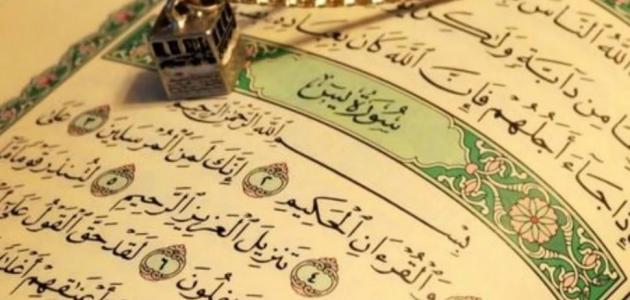 ٱللَّهُ ٱلنَّاسَ
مِن دَآبَّةٍ وَلَٰكِن
إِذَا جَآءَ أَجَلُهُمْ فَإِنَّ ٱللَّهَ كَانَ
سُورَةُ يسٓ
بِسْمِ ٱللَّهِ ٱلرَّحْمَٰنِ ٱلرَّحِيمِ
وَٱلْقُرْءَانِ ٱلْحَكِيمِ ٢ إِنَّكَ لَمِنَ ٱلْمُرْسَلِينَ ٣ عَلَىٰ
٤ تَنزِيلَ ٱلْعَزِيزِ ٱلرَّحِيمِ ٥ لِتُنذِرَ قَوْمًا مَّآ
٦ لَقَدْ حَقَّ ٱلْقَوْلُ عَلَىٰ